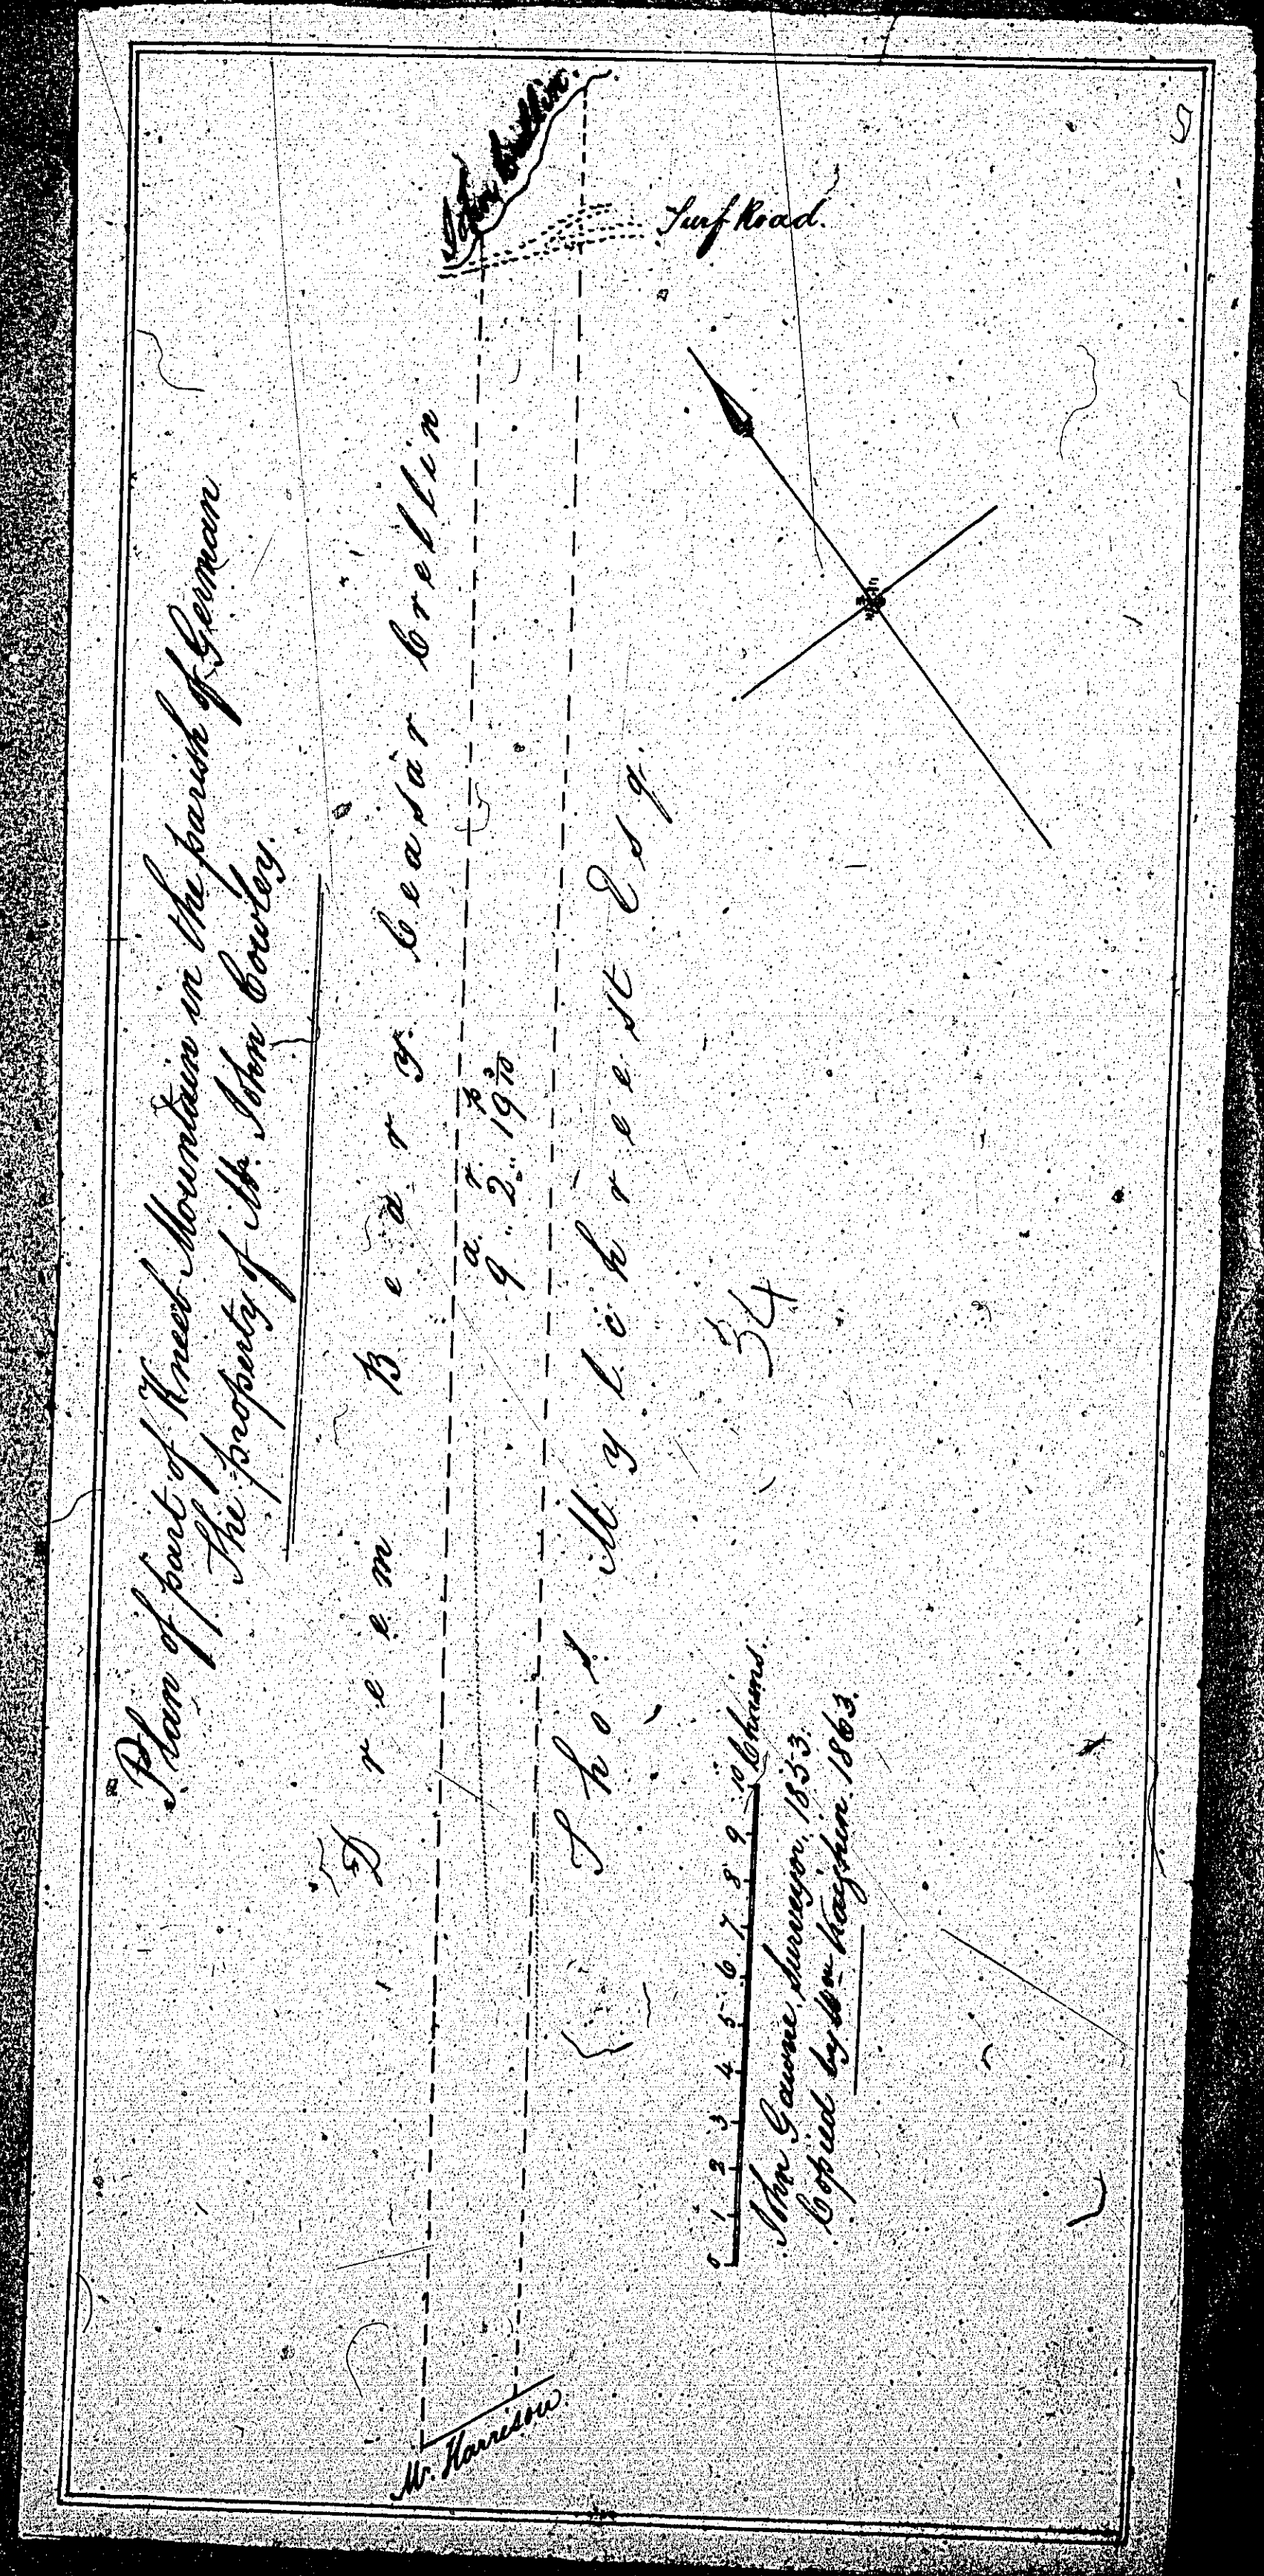 Plan of part of Kneeb Mountain in the parish of German
The property of Mr. John Cowley.
John Crellin.
Turf Road.
Dreem Beary. Ceasar Crellin
a. r. p.
9 .. 2 .. 19 3/10
Thos Mylchreest Esq.
Mr. Harrison
34
0 1 2 3 4 5 6 7 8 9 10 Chains.
John Gawne, Surveyor, 1853.
Copied by Wm Kaighin. 1863.